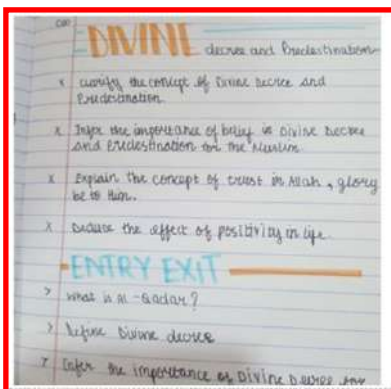 DIVINE decree and Predestination
x clarify the concept of Divine Decree and
Predestination.
x Infer the importance of belief in Divine Decree
and Predestination for the Muslim
x Explain the concept of trust in Allah, glory
be to Him.
x Deduce the effect of positivity in life.
ENTRY EXIT
> What is Al-Qadar?
> Define Divine decree
> Infer the importance of Divine Decree for